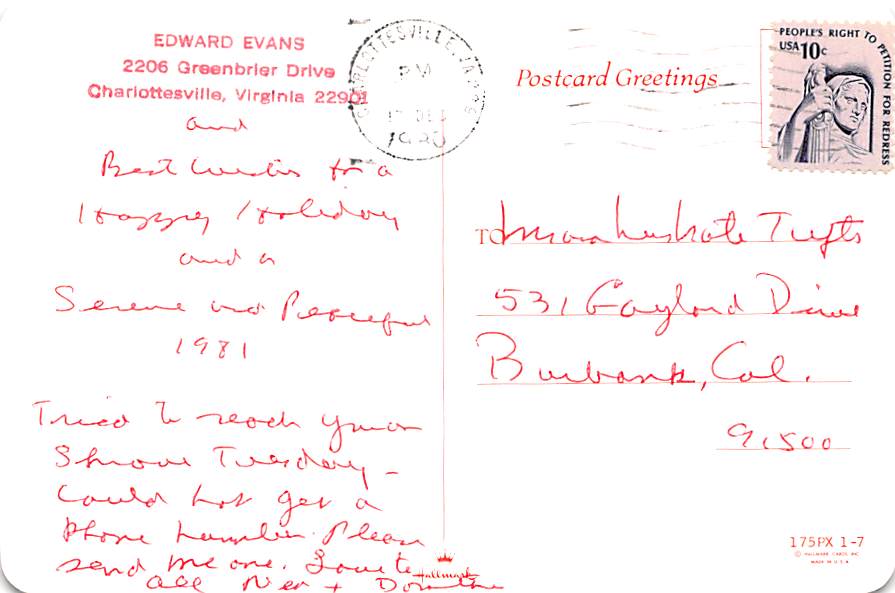 EDWARD EVANS
2206 Greenbrier Drive
Charlottesville, Virginia 22901
and
Best Wishes for a
Happy Holiday
and a
Serene and Peaceful
1981
Tried to reach you on
Shrove Tuesday -
Could not get a
phone number. Please
send me one. Love to
all Nea + Dorothea
CHARLOTTESVILLE, VA
PM
17 DEC
1980
Postcard Greetings
PEOPLE'S RIGHT TO PETITION FOR REDRESS
USA 10c
TO Tufts
531 Gaylord Drive
Burbank, Cal.
91500
Hallmark
175PX 1-7
© HALLMARK CARDS, INC.
MADE IN U.S.A.